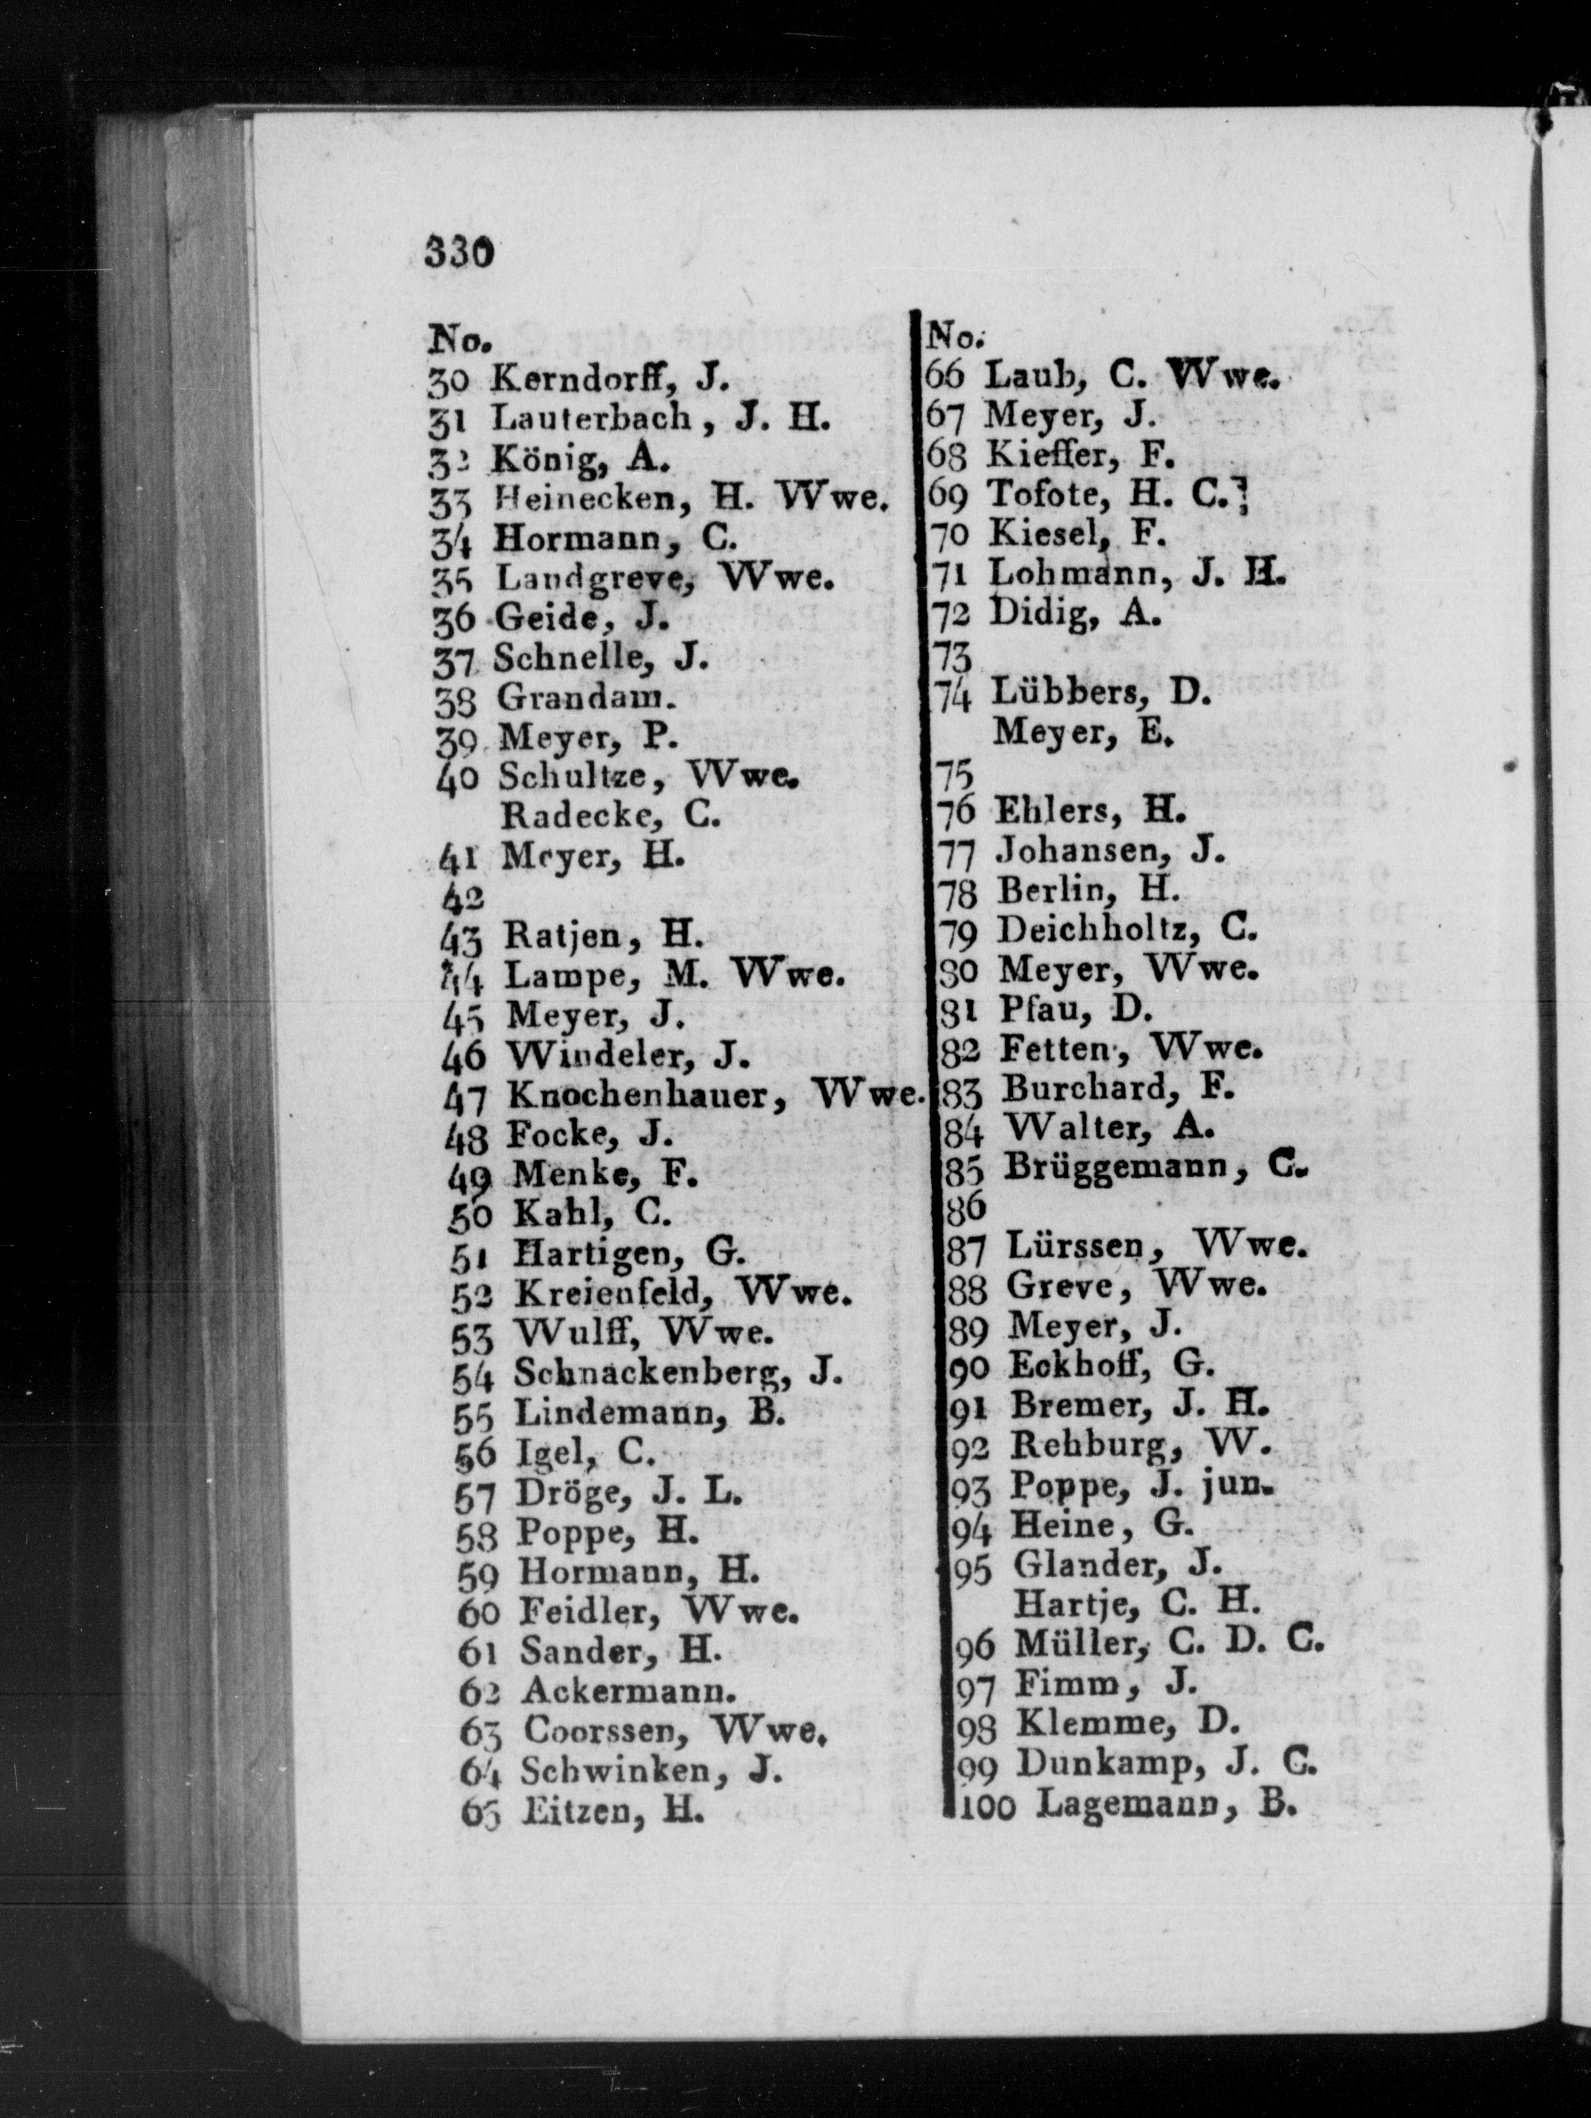 330
No.
30 Kerndorff, J.
31 Lauterbach, J. H.
32 König, A.
33 Heinecken, H. Wwe.
34 Hormann, C.
35 Landgreve, Wwe.
36 Geide, J.
37 Schnelle, J.
38 Grandam.
39 Meyer, P.
40 Schultze, Wwe.
Radecke, C.
41 Meyer, H.
42
43 Ratjen, H.
44 Lampe, M. Wwe.
45 Meyer, J.
46 Windeler, J.
47 Knochenhauer, Wwe.
48 Focke, J.
49 Menke, F.
50 Kahl, C.
51 Hartigen, G.
52 Kreienfeld, Wwe.
53 Wulff, Wwe.
54 Schnackenberg, J.
55 Lindemann, B.
56 Igel, C.
57 Dröge, J. L.
58 Poppe, H.
59 Hormann, H.
60 Feidler, Wwe.
61 Sander, H.
62 Ackermann.
63 Coorssen, Wwe.
64 Schwinken, J.
65 Eitzen, H.
No.
66 Laub, C. Wwe.
67 Meyer, J.
68 Kieffer, F.
69 Tofote, H. C.
70 Kiesel, F.
71 Lohmann, J. H.
72 Didig, A.
73
74 Lübbers, D.
Meyer, E.
75
76 Ehlers, H.
77 Johansen, J.
78 Berlin, H.
79 Deichholtz, C.
80 Meyer, Wwe.
81 Pfau, D.
82 Fetten, Wwe.
83 Burchard, F.
84 Walter, A.
85 Brüggemann, C.
86
87 Lürssen, Wwe.
88 Greve, Wwe.
89 Meyer, J.
90 Eckhoff, G.
91 Bremer, J. H.
92 Rehburg, W.
93 Poppe, J. jun.
94 Heine, G.
95 Glander, J.
Hartje, C. H.
96 Müller, C. D. C.
97 Fimm, J.
98 Klemme, D.
99 Dunkamp, J. C.
100 Lagemann, B.